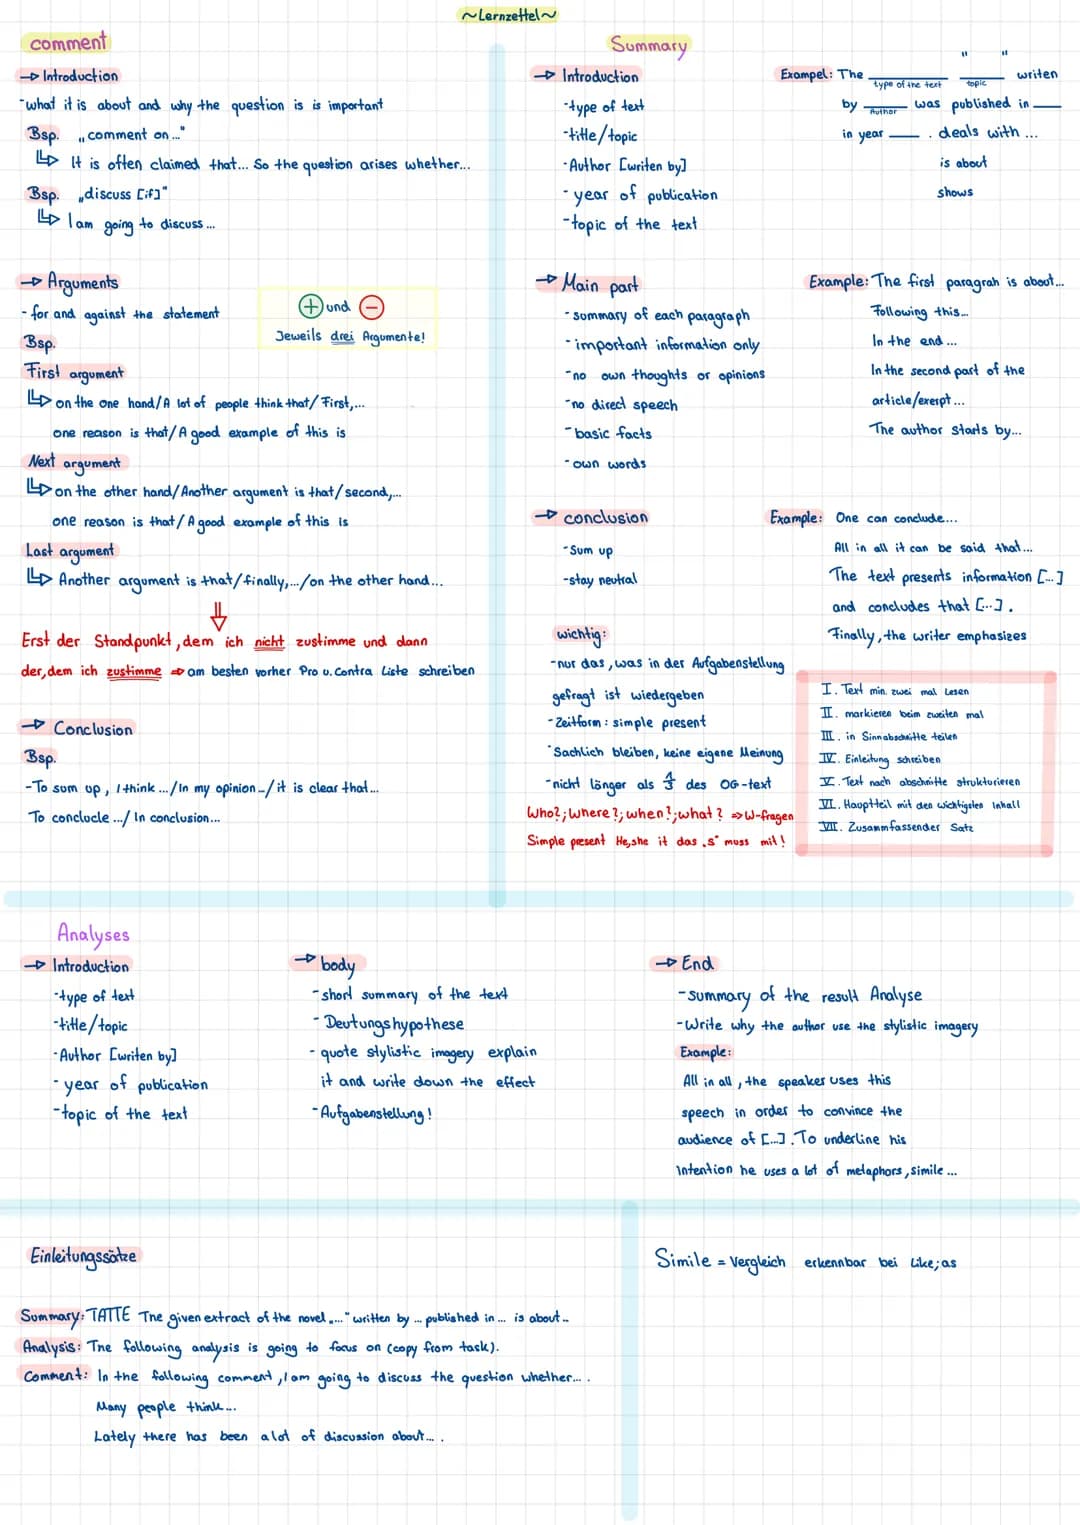 ~Lernzettel~
comment
→ Introduction
-what it is about and why the question is is important
Bsp. „comment on..."
↳ It is often claimed that... So the question arises whether...
Bsp. „discuss [if]"
↳ I am going to discuss...
→ Arguments
- for and against the statement
+ und -
Jeweils drei Argumente!
Bsp.
First argument
↳ on the one hand/A lot of people think that/First,...
one reason is that/A good example of this is
Next argument
↳ on the other hand/Another argument is that/second,...
one reason is that/A good example of this is
Last argument
↳ Another argument is that/finally,.../on the other hand...
⇓
Erst der Standpunkt, dem ich nicht zustimme und dann
der, dem ich zustimme ⇒ am besten vorher Pro u. Contra Liste schreiben
→ Conclusion
Bsp.
-To sum up, I think .../In my opinion../it is clear that...
To conclucle .../ In conclusion...
Summary
→ Introduction
-type of text
-title/topic
-Author [writen by]
- year of publication
-topic of the text
Exampel: The ____ "____" writen
type of the text topic
by ____ was published in ____
Author
in year ____. deals with ...
is about
shows
→ Main part
- summary of each paragraph
- important information only
-no own thoughts or opinions
-no direct speech
-basic facts
-own words
Example: The first paragrah is about...
Following this...
In the end ...
In the second part of the
article/exerpt ...
The author starts by...
→ conclusion
-Sum up
-stay neutral
Example: One can conclude...
All in all it can be said that...
The text presents information [...]
and concludes that [...].
Finally, the writer emphasizes
wichtig:
-nur das, was in der Aufgabenstellung
gefragt ist wiedergeben
-Zeitform: simple present
-Sachlich bleiben, keine eigene Meinung
-nicht länger als 1/3 des OG-text
Who?; where?; when?; what? ⇒ W-fragen
Simple present He, she it das „s" muss mit!
I. Text min. zwei mal Lesen
II. markieren beim zweiten mal
III. in Sinnabschnitte teilen
IV. Einleitung schreiben
V. Text nach abschnitte strukturieren
VI. Hauptteil mit den wichtigsten Inhalt
VII. Zusammfassender Satz
Analyses
→ Introduction
-type of text
-title/topic
-Author [writen by]
- year of publication
-topic of the text
→ body
-short summary of the text
- Deutungshypothese
- quote stylistic imagery explain
it and write down the effect
-Aufgabenstellung!
→ End
-summary of the result Analyse
-Write why the author use the stylistic imagery
Example:
All in all, the speaker uses this
speech in order to convince the
audience of [...]. To underline his
Intention he uses a lot of metaphors, simile ...
Einleitungssätze
Summary: TATTE The given extract of the novel „..." written by ... published in ... is about...
Analysis: The following analysis is going to focus on (copy from task).
Comment: In the following comment, I am going to discuss the question whether... .
Many people think...
Lately there has been a lot of discussion about... .
Simile = Vergleich erkennbar bei Like; as